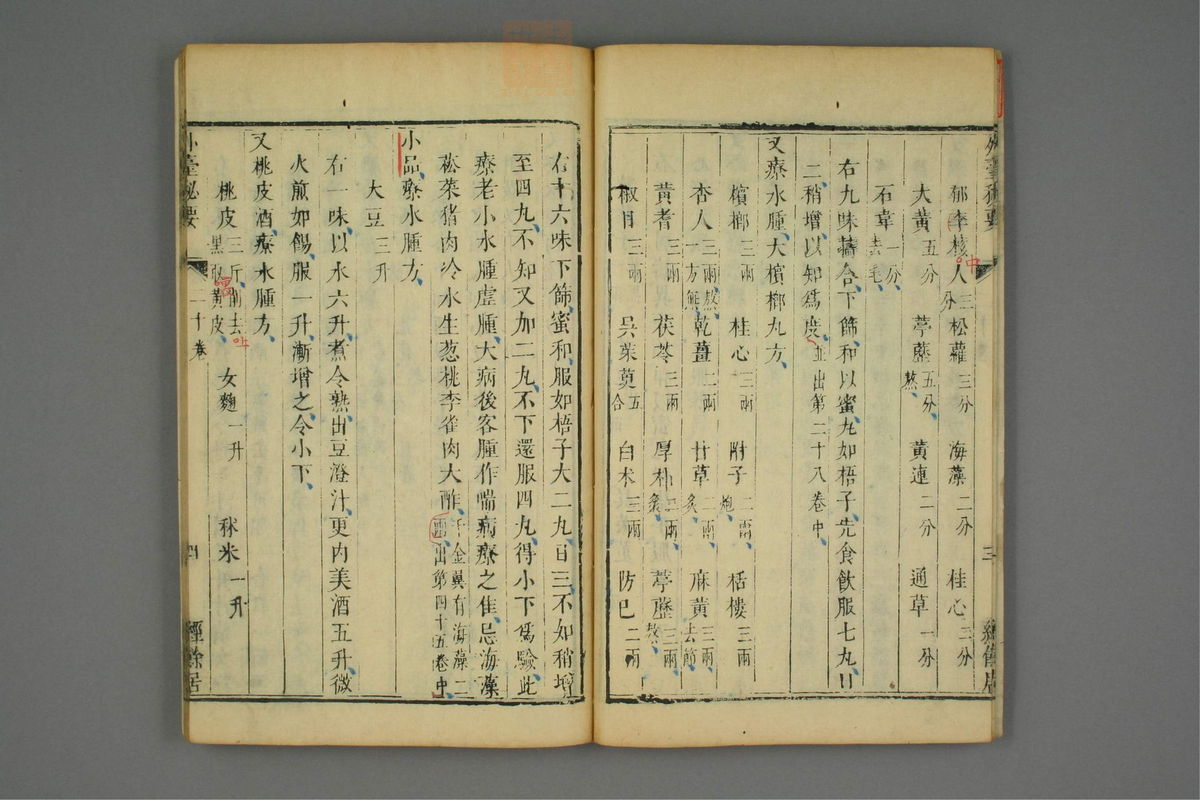 外臺秘要
三
經餘居
郁李核人三分 松蘿三分 海藻二分 桂心三分
大黃五分 葶藶五分熬 黃連二分 通草一分
石韋一分去毛
右九味擣合下篩和以蜜丸如梧子先食飲服七丸日
二稍增以知爲度並出第二十八卷中
又療水腫大檳榔丸方
檳榔三兩 桂心三兩 附子二兩炮 栝樓三兩
杏人三兩熬一方無 乾薑二兩 甘草二兩炙 麻黃三兩去節
黃耆三兩 茯苓三兩 厚朴二兩炙 葶藶三兩熬
椒目三兩 吳茱萸五合 白朮三兩 防己二兩
右十六味下篩蜜和服如梧子大二丸日三不知稍增
至四丸不知又加二丸不下還服四丸得小下爲驗此
療老小水腫虛腫大病後客腫作喘病療之佳忌海藻
菘菜猪肉冷水生葱桃李雀肉大酢千金翼有海藻二兩出第四十五卷中
小品療水腫方
大豆三升
右一味以水六升煮令熟出豆澄汁更內美酒五升微
火煎如餳服一升漸增之令小下
又桃皮酒療水腫方
桃皮三斤削去黑取黃皮 女麴一升 秫米一升
外臺秘要
二十卷
四
經餘居